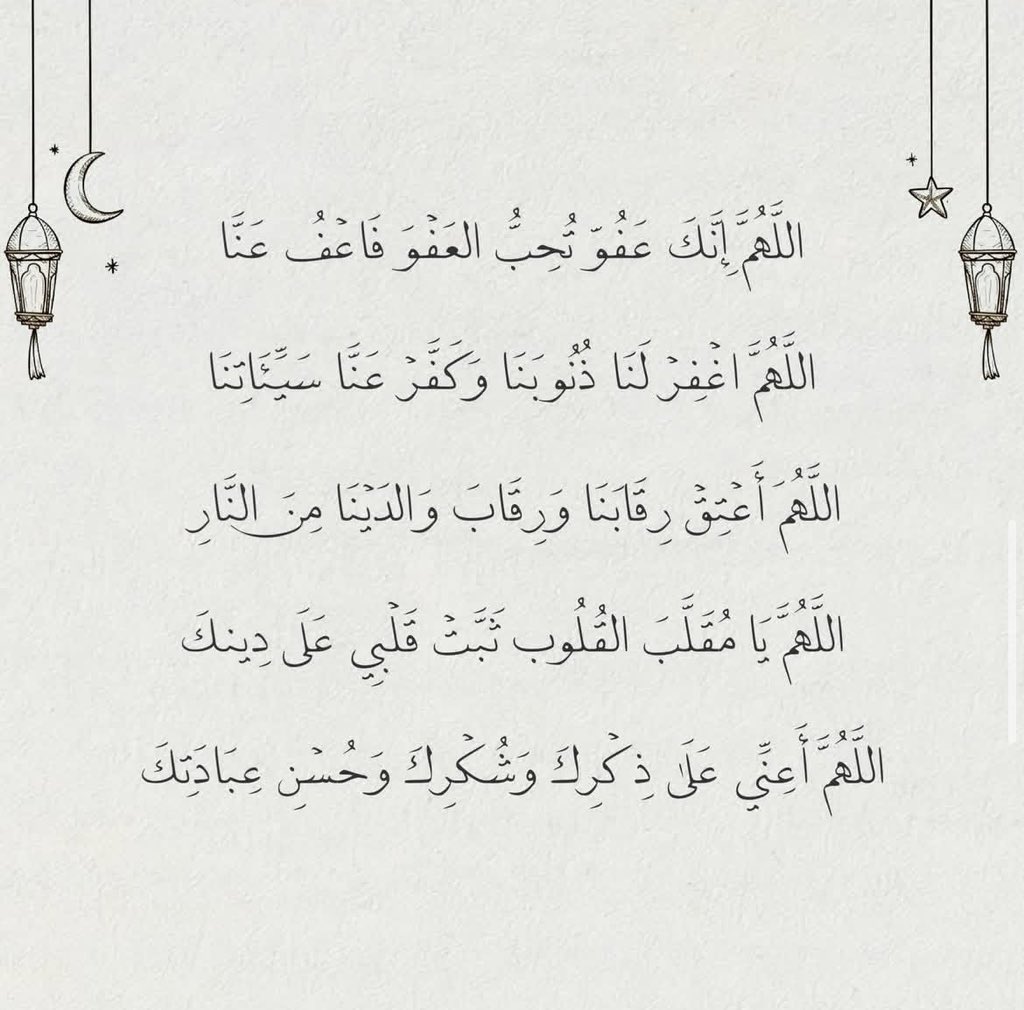 اللَّهُمَّ إِنَّكَ عَفُوّ تُحِبُّ العَفْوَ فَاعْفُ عَنَّا
اللَّهُمَّ اغْفِرْ لَنَا ذُنُوبَنَا وَكَفَّرْ عَنَّا سَيِّئَاتِنَا
اللَّهُمَ أَعْتِقْ رِقَابَنَا وَرِقَابَ وَالدَيْنَا مِنَ النَّارِ
اللَّهُمَّ يَا مُقَلَّبَ القُلُوب ثَبَّتْ قَلْبِي عَلَى دِينكَ
اللَّهُمَّ أَعِنِّي عَلَى ذِكْرِكَ وَشُكْرِكَ وَحُسْنِ عِبَادَتِكَ